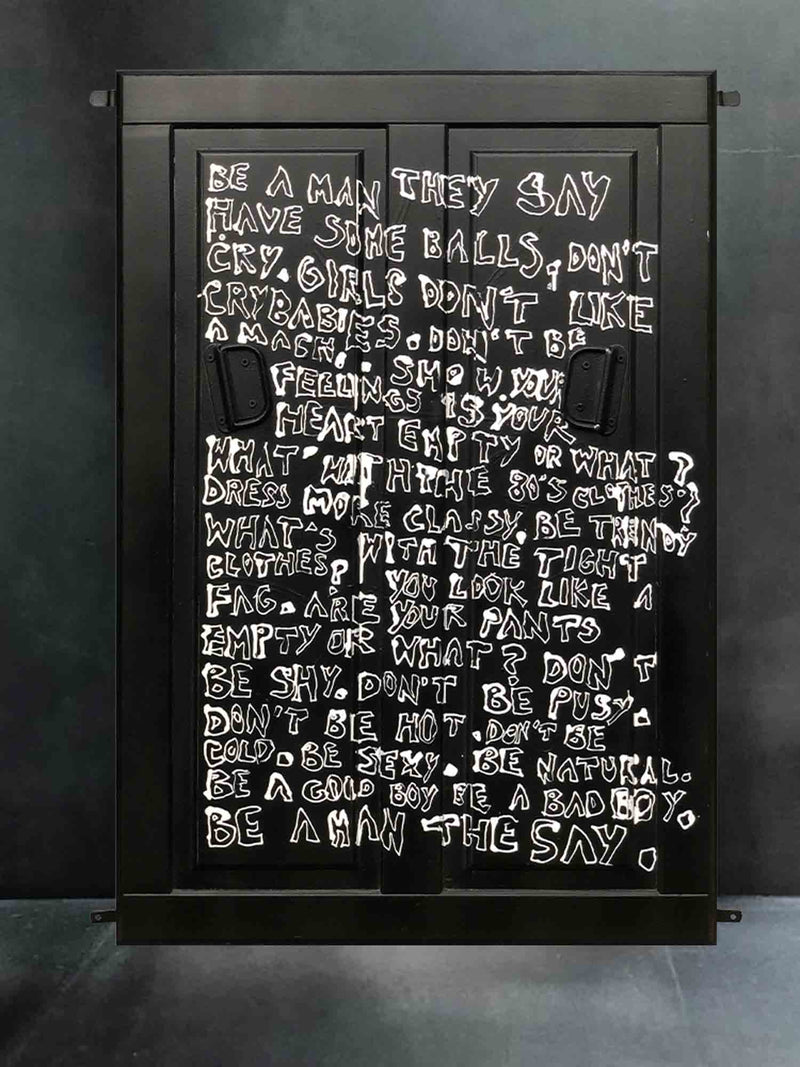 BE A MAN THEY SAY
HAVE SOME BALLS, DON'T
CRY. GIRLS DON'T LIKE
CRYBABIES. DON'T BE
A MACH,. SHOW YOUR
FEELINGS IS YOUR
HEART EMPTY OR WHAT?
WHAT' WITH THE 80'S CLOTHES?
DRESS MORE CLASSY, BE TRENDY
WHAT'S WITH THE TIGHT
CLOTHES? YOU LOOK LIKE A
FAG. ARE YOUR PANTS
EMPTY OR WHAT? DON'T
BE SHY. DON'T BE PUSY.
DON'T BE HOT. DON'T BE
COLD. BE SEXY. BE NATURAL.
BE A GOOD BOY BE A BAD BOY.
BE A MAN THE SAY.